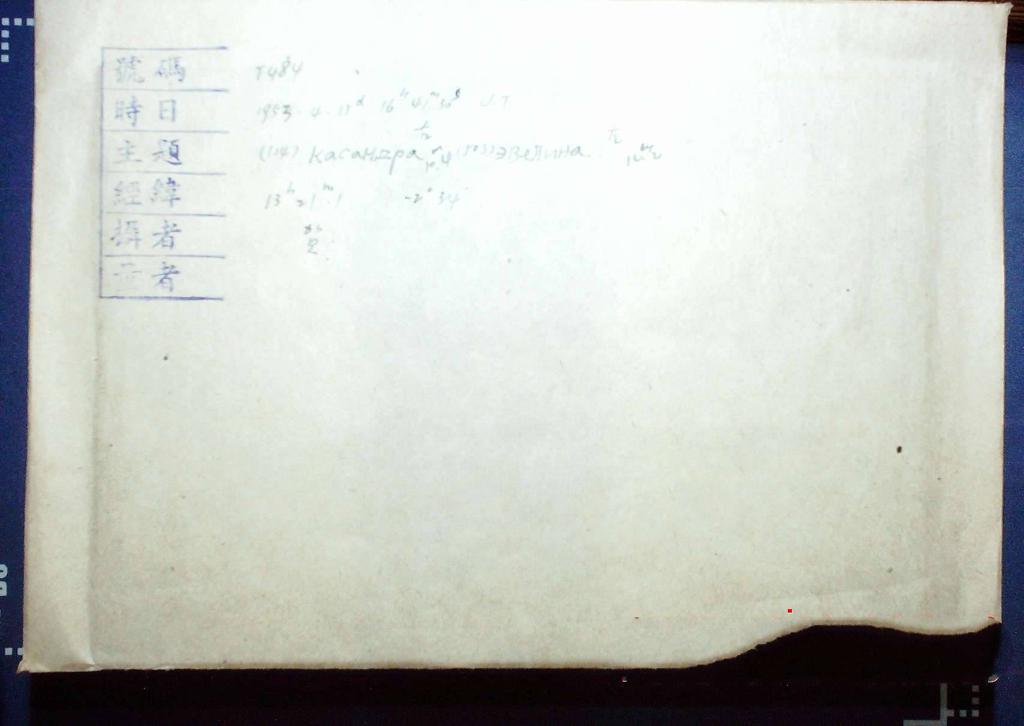 號碼 T484
時日 1953. 4. 13ᵈ 16ʰ 41ᵐ 30ˢ U.T
主題 Касандра Эвелина
經緯 13ʰ 21ᵐ.1 -2° 34'
攝者
量者